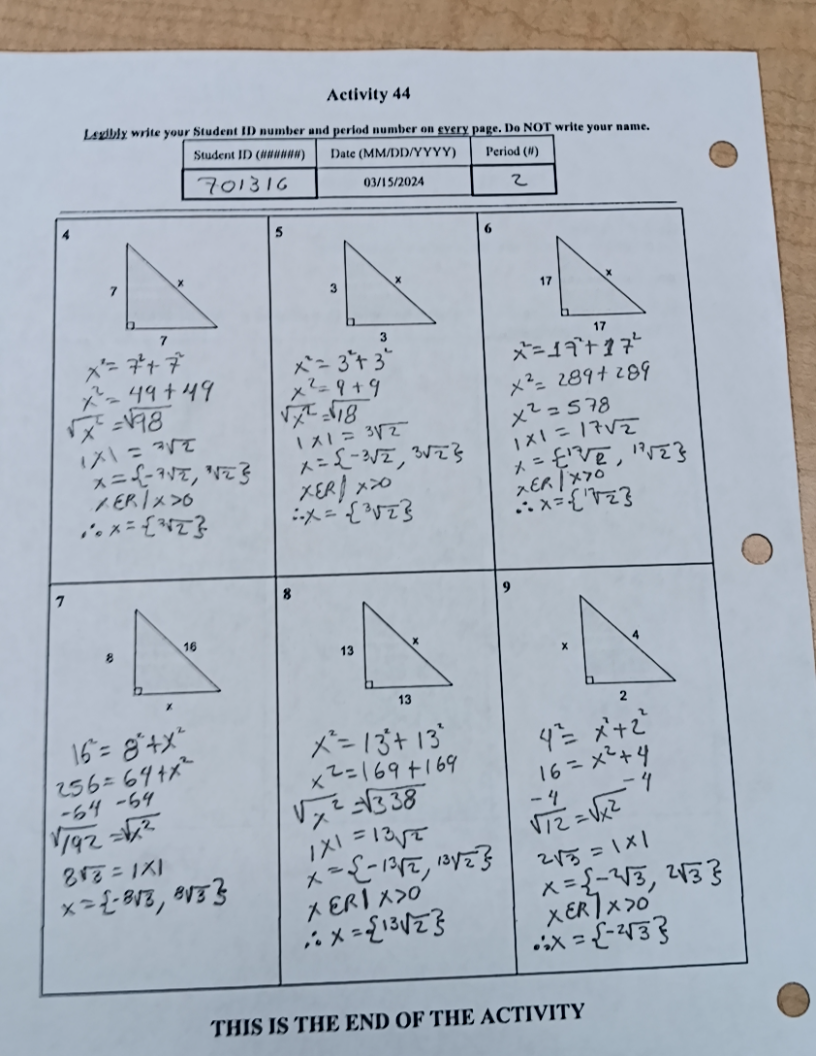 Activity 44
Legibly write your Student ID number and period number on every page. Do NOT write your name.
Student ID (######) Date (MM/DD/YYYY) Period (#)
701316 03/15/2024 2
4
7
x
7
x² = 7² + 7²
x² = 49 + 49
√x² = √98
|x| = 7√2
x = {-7√2, 7√2}
xER | x>0
∴ x = {7√2}
5
3
x
3
x² = 3² + 3²
x² = 9 + 9
√x² = √18
|x| = 3√2
x = {-3√2, 3√2}
xER | x>0
∴ x = {3√2}
6
17
x
17
x² = 17² + 17²
x² = 289 + 289
x² = 578
|x| = 17√2
x = {17√2, 17√2}
xER | x>0
∴ x = {17√2}
7
8
16
x
16² = 8² + x²
256 = 64 + x²
-64 -64
√192 = √x²
8√3 = |x|
x = {-8√3, 8√3}
8
13
x
13
x² = 13² + 13²
x² = 169 + 169
√x² = √338
|x| = 13√2
x = {-13√2, 13√2}
xER | x>0
∴ x = {13√2}
9
x
4
2
4² = x² + 2²
16 = x² + 4
-4 -4
√12 = √x²
2√3 = |x|
x = {-2√3, 2√3}
xER | x>0
∴ x = {-2√3}
THIS IS THE END OF THE ACTIVITY